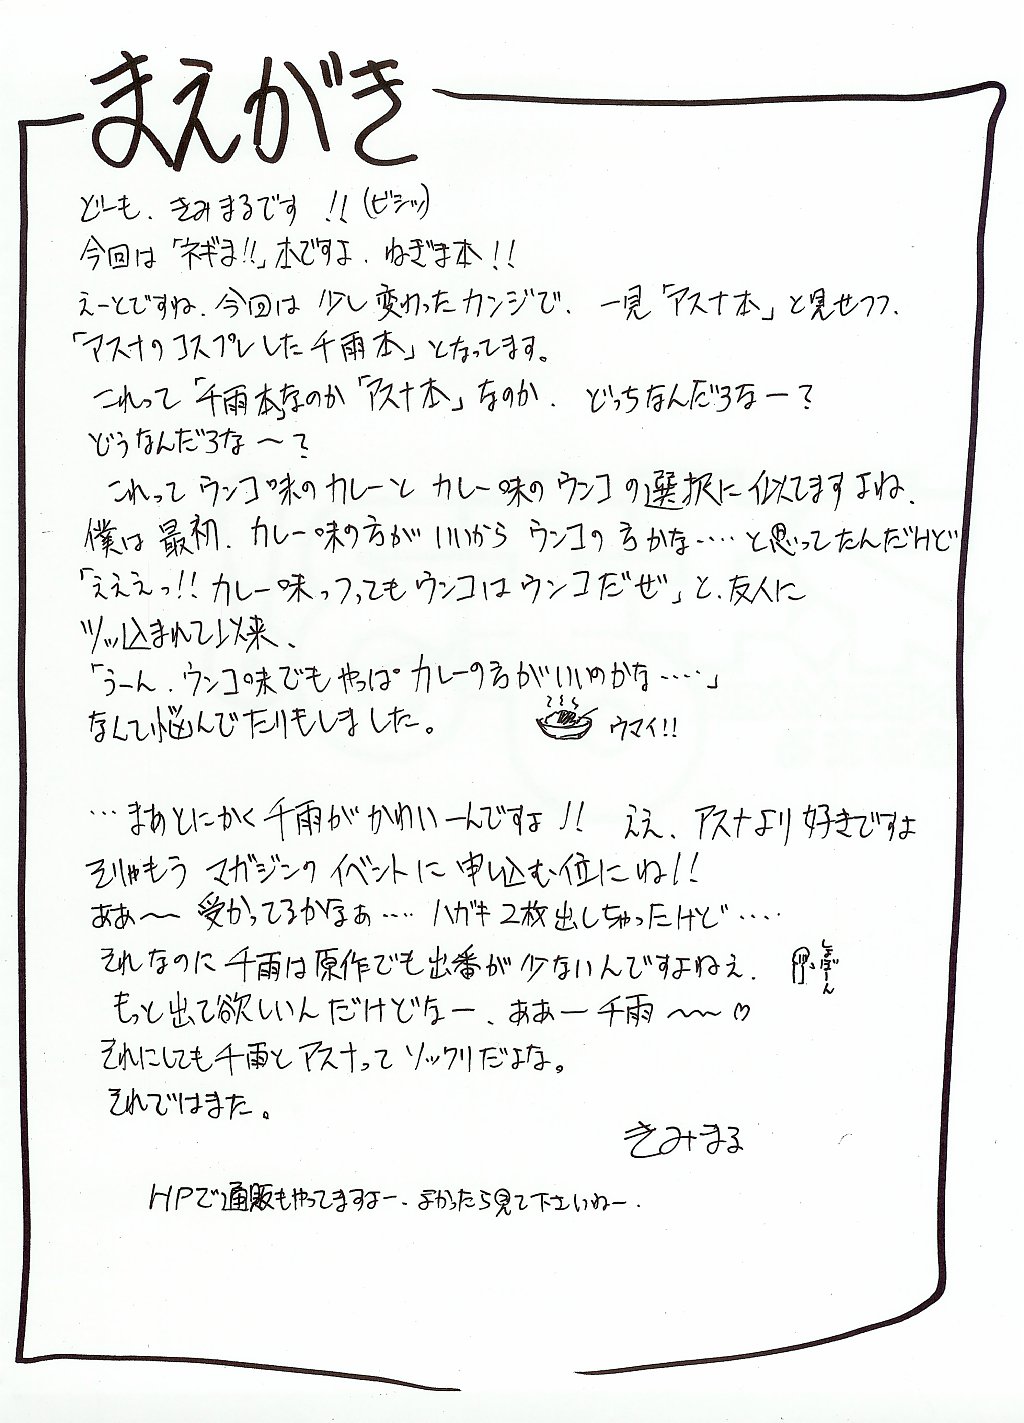 まえがき
どーも、きみまるです!!(ビシッ)
今回は「ネギま!!」本ですよ、ねぎま本!!
えーとですね、今回は少し変わったカンジで、一見「アスナ本」と見せつつ、
「アスナのコスプレした千雨本」となってます。
これって「千雨本」なのか「アスナ本」なのか、どっちなんだろなー?
どうなんだろな～?
これってウンコ味のカレーとカレー味のウンコの選択に似てますよね、
僕は最初、カレー味の方がいいからウンコの方かな‥‥と思ってたんだけど
「えええっ!!カレー味っつってもウンコはウンコだぜ」と、友人に
ツッ込まれて以来、
「うーん、ウンコ味でもやっぱカレーの方がいいのかな‥‥」
なんて悩んでたりもしました。
ウマイ!!
…まあとにかく千雨がかわいーんですよ!! ええ、アスナより好きですよ
そりゃもうマガジンのイベントに申し込む位にね!!
ああ～受かってるかなぁ‥‥ハガキ2枚出しちゃったけど‥‥
それなのに千雨は原作でも出番が少ないんですよねぇ、
しょぼーん
もっと出て欲しいんだけどなー、ああー千雨～～♡
それにしても千雨とアスナってソックリだよな。
それではまた。
きみまる
HPで通販もやってますよー、よかったら見て下さいねー、